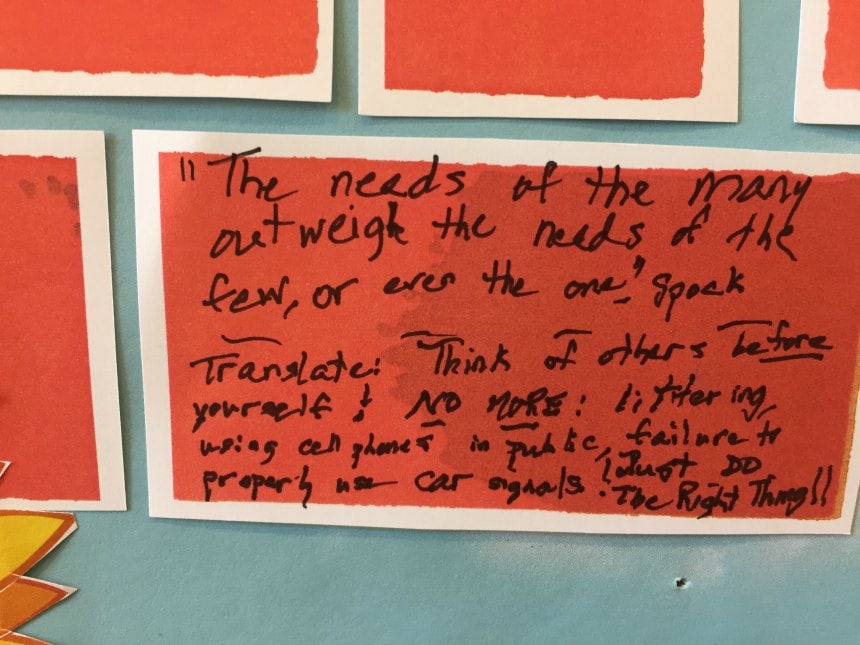 "The needs of the many
outweigh the needs of the
few, or even the one." Spock
Translate: Think of others before
yourself! NO MORE: littering,
using cell phones in public, failure to
properly use car signals! Just DO
The Right Thing!!